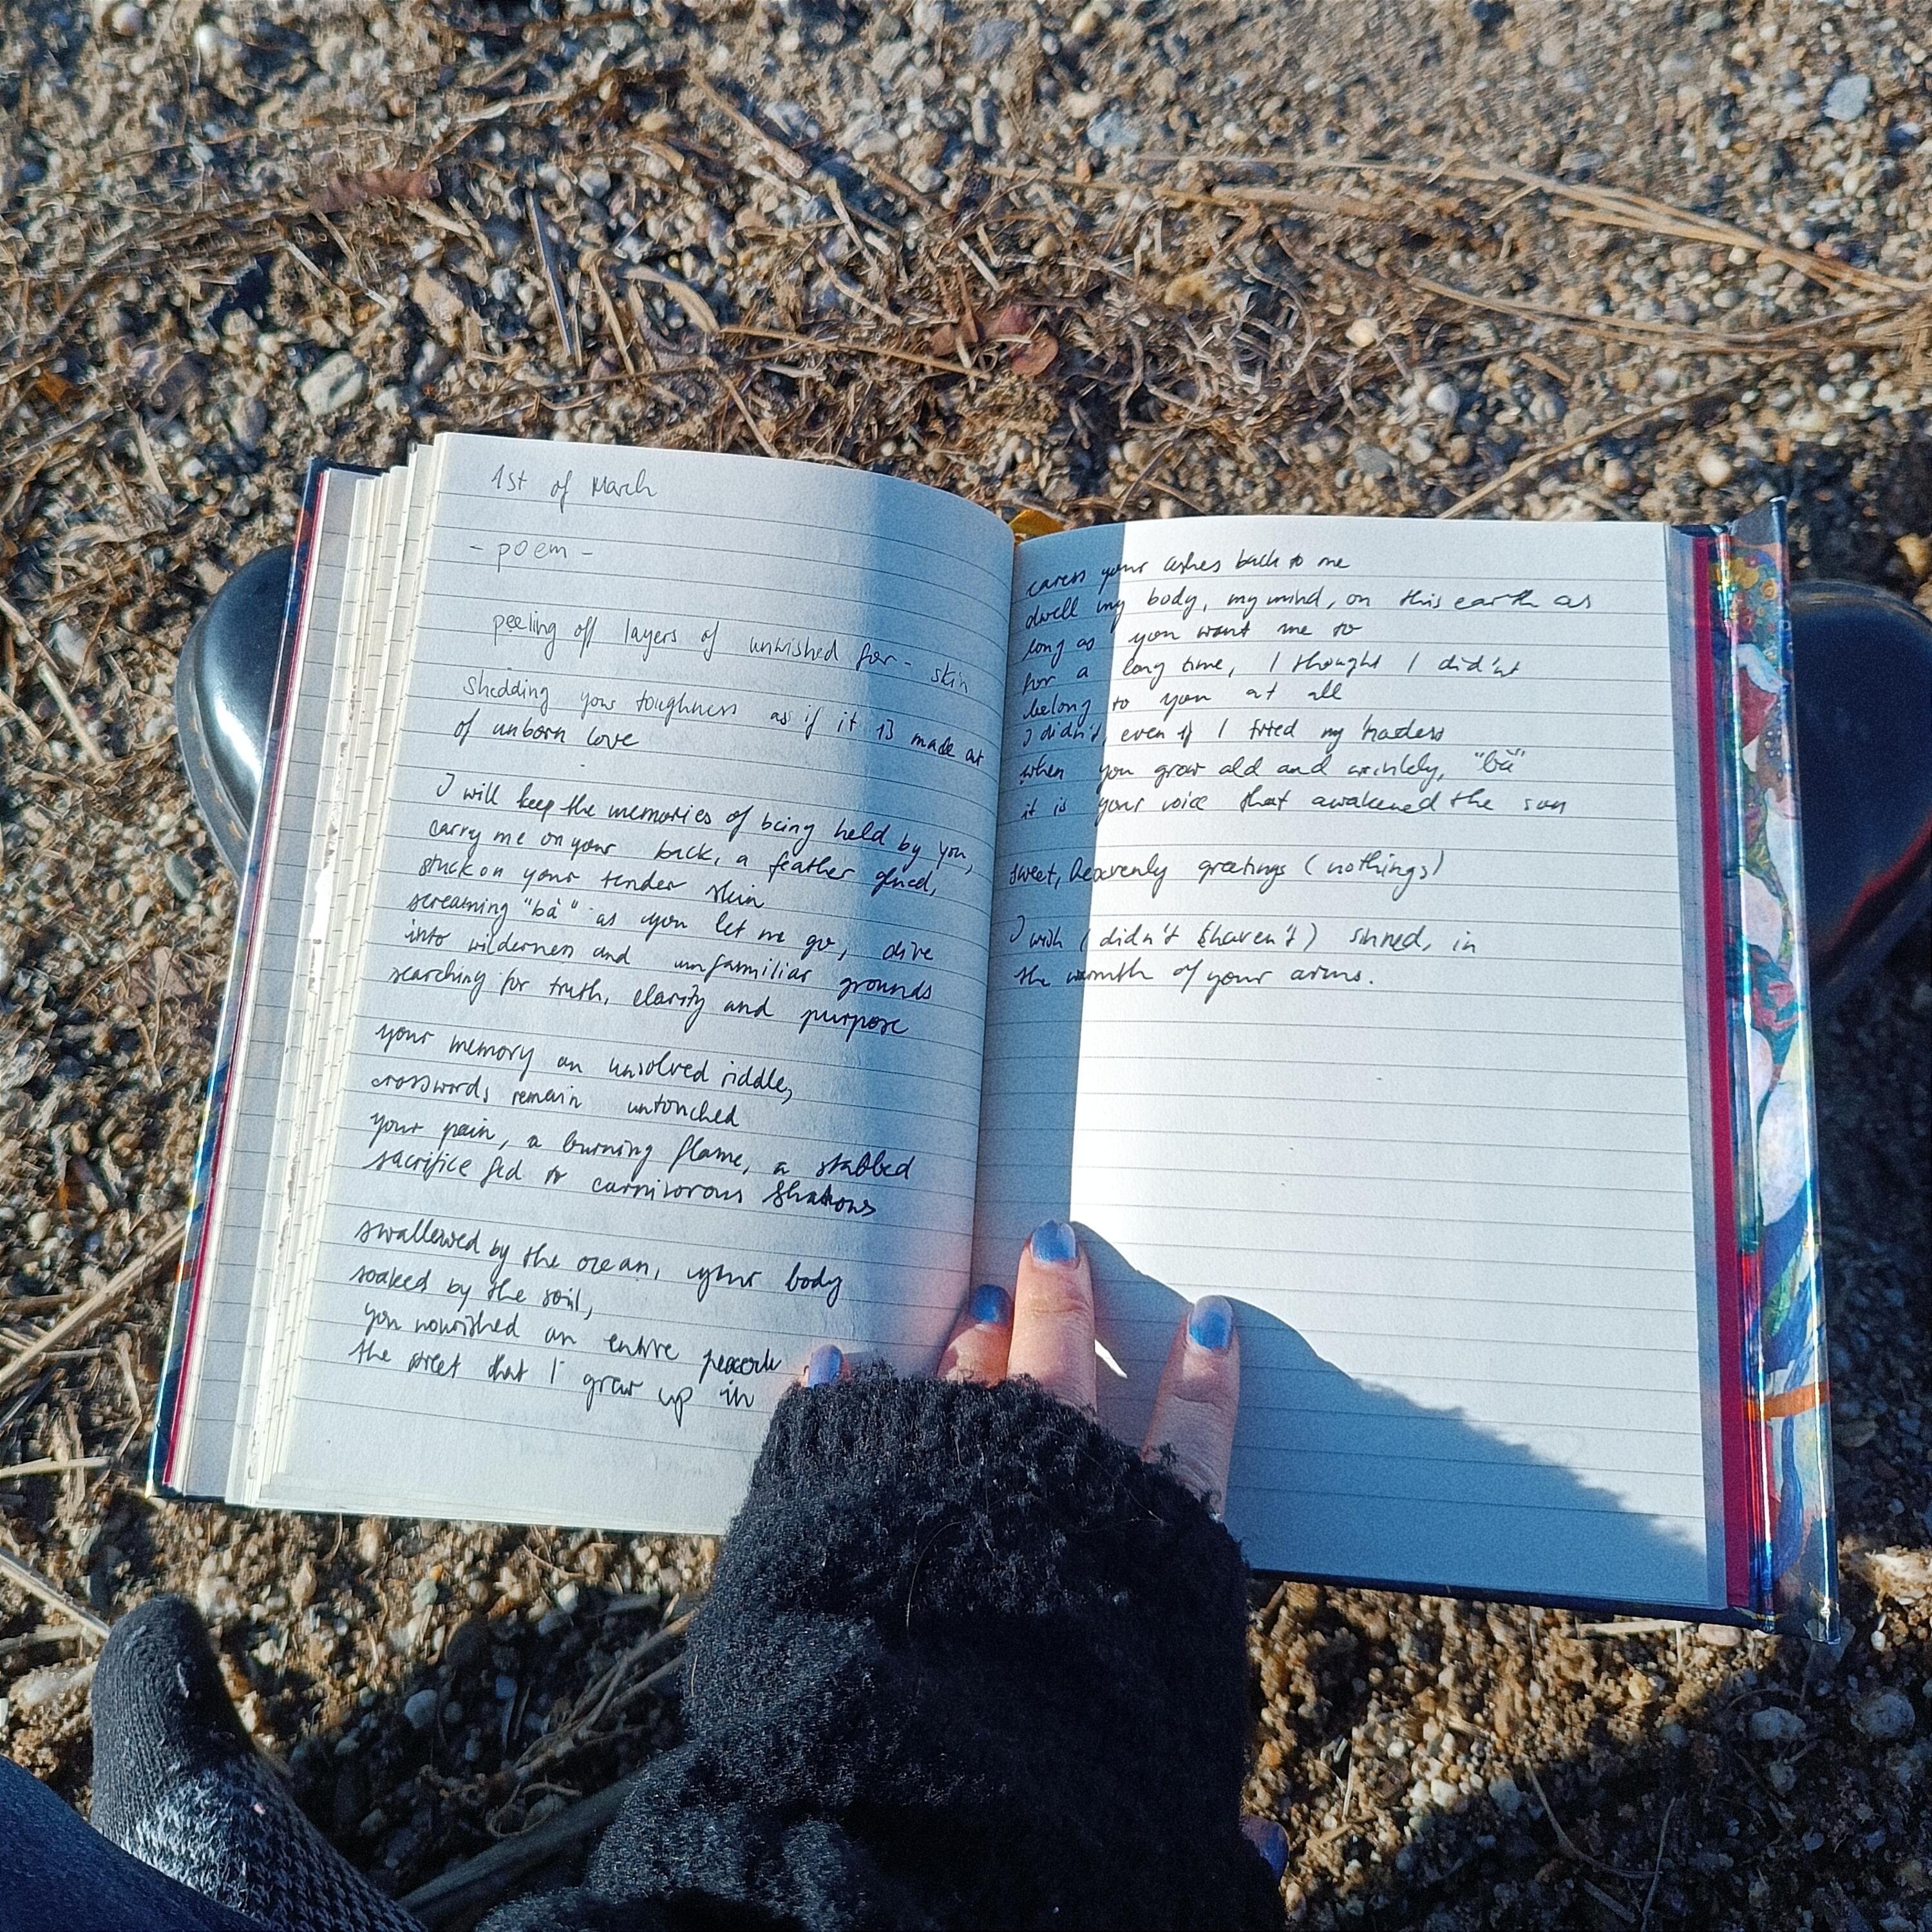 1st of March
- poem -
peeling off layers of unwished for - skin
shedding your toughness as if it is made at
of unborn love
I will keep the memories of being held by you,
carry me on your back, a feather glued,
stuck on your tender skin
screaming "bà" as you let me go, alive
into wilderness and unfamiliar grounds
searching for truth, clarity and purpose
your memory an unsolved riddle,
crosswords remain untouched
your pain, a burning flame, a stabbed
sacrifice fed to carnivorous shadows
swallowed by the ocean, your body
soaked by the soil,
you nourished an entire
the street that I grew up in
caress your ashes back to me
dwell my body, my mind, on this earth as
long as you want me to
for a long time, I thought I didn't
belong to you at all
I didn't, even if I tried my hardest
when you grow old and wrinkly,
it is your voice that awakened the sun
sweet, heavenly greetings (nothings)
I wish (didn't haven't) sinned, in
the warmth of your arms.